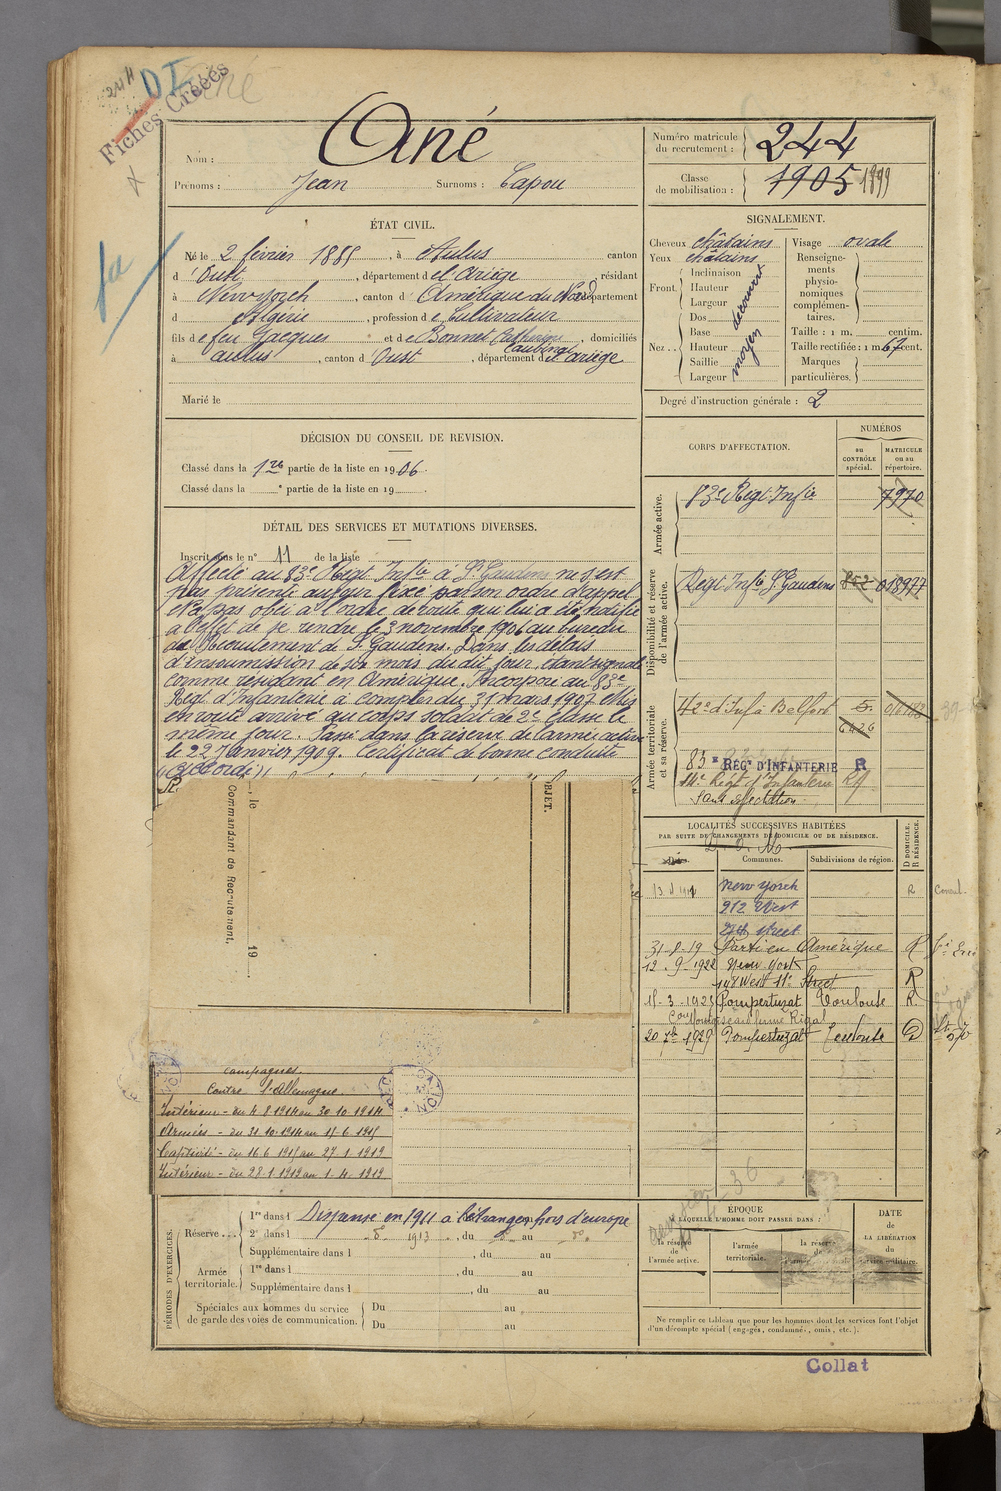 244
DI
Ané
Fiches Créées
fa
Nom : Ané
Prénoms : Jean Surnoms : Capou
Numéro matricule du recrutement : 244
Classe de mobilisation : 1905 1899
ÉTAT CIVIL.
Né le 2 février 1885, à Aulus canton
d'Oust, département de l'Ariège, résidant
à New yorch, canton d Amérique du Nord département
d Algérie, profession de Cultivateur
fils de feu Jacques et de Bonnet Catherine, domiciliés
à aulus, canton d'Oust, département de l'ariège
Marié le
SIGNALEMENT.
Cheveux châtains
Yeux châtains
Front. Inclinaison
Hauteur
Largeur
découvert
Nez .. Dos
Base
Hauteur
Saillie
Largeur
moyen
Visage ovale
Renseignements physionomiques complémentaires.
Taille : 1 m. centim.
Taille rectifiée : 1 m 67 cent.
Marques particulières.
Degré d'instruction générale : 2
DÉCISION DU CONSEIL DE REVISION.
Classé dans la 1re partie de la liste en 1906.
Classé dans la e partie de la liste en 19 .
DÉTAIL DES SERVICES ET MUTATIONS DIVERSES.
Inscrit sous le n° 11 de la liste
Affecté au 83e Regt Infie à St Gaudens ne s'est
pas présenté au jour fixé par son ordre d'appel
N'a pas obéi à l'ordre de route qui lui a été notifié
à l'effet de se rendre le 3 novembre 1906 au bureau
de Recrutement de St Gaudens. Dans les délais
d'insoumission de six mois du dit jour, étant signalé
comme résidant en Amérique. Incorporé au 83e
Regt d'Infanterie à compter du 31 mars 1907 Mis
en route arrivé au corps soldat de 2e classe le
même jour. Passé dans la réserve de l'armée active
le 22 Janvier 1909. Certificat de bonne conduite
"Accordé"
, le 19
Commandant de Recrutement,
OBJET.
campagnes.
Contre l'Allemagne.
Intérieur - du 4.8.1914 au 30.10.1914
Armées - du 31.10.1914 au 15-6-1915
Captivité - du 16.6.1915 au 27.1.1919
Intérieur - du 28.1.1919 au 1.4.1919
CORPS D'AFFECTATION.
NUMÉROS
au CONTRÔLE spécial.
MATRICULE ou au répertoire.
Armée active.
83e Regt Infie 7970
Disponibilité et réserve de l'armée active.
Regt Infie St Gaudens 852 018977
Armée territoriale et sa réserve.
42e d'Inf à Belfort
83e RÉGt D'INFANTERIE R
14e Regt d'Infanterie
Sans affectation
LOCALITÉS SUCCESSIVES HABITÉES
PAR SUITE DE CHANGEMENTS DE DOMICILE OU DE RÉSIDENCE.
Communes.
Subdivisions de région.
D DOMICILE. R RÉSIDENCE.
New yorch R Consul.
212 West
street
31-8-19 Parti en Amérique R
12-9-1922 New-York
West 11e Street R
15-3-1925 Pompertuzat Toulouse R.
ferme Rigal
20 7bre 1929 Pompertuzat Toulouse D
PÉRIODES D'EXERCICES.
Réserve ... 1re dans l Dispensé en 1911 a l'étranger hors d'europe
2e dans l do 1913 , du do au do
Supplémentaire dans l , du au
Armée territoriale. 1re dans l , du au
Supplémentaire dans l , du au
Spéciales aux hommes du service de garde des voies de communication. Du au
Du au
ÉPOQUE
À LAQUELLE L'HOMME DOIT PASSER DANS :
la réserve de l'armée active.
l'armée territoriale.
la réserve de
DATE de LA LIBÉRATION du service militaire.
Ne remplir ce tableau que pour les hommes dont les services font l'objet
d'un décompte spécial (engagés, condamnés, omis, etc.).
Collat